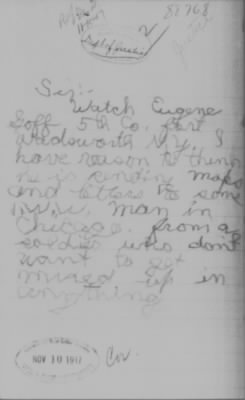 82768
2
Dept of Justice
Sir:-
Watch Eugene
Goff 5th Co. Fort
Wadsworth N.Y. I
have reason to think
he is sending maps
and letters to some
I.W.W. man in
Chicago. from a
soldier who dont
want to get
mixed up in
anything
NOV 10 1917
Cov.